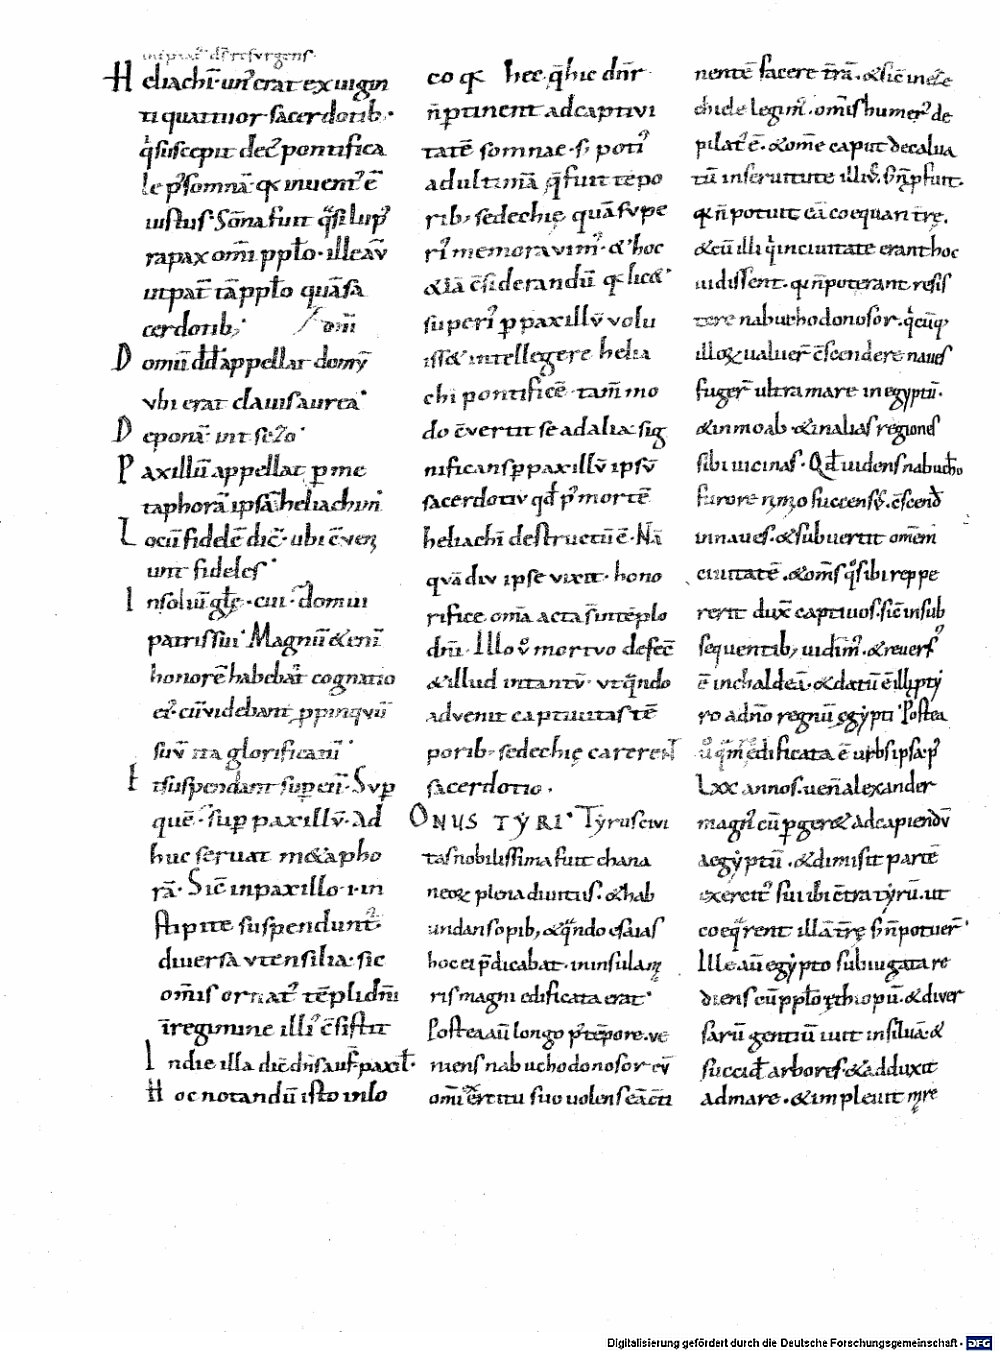 Heliachī· un᾽ erat ex uigin
ti quattuor sacerdotib·
q̇ suscepit dec᾽ pontifica
le p᾽ somnā· q̄ inuent᾽ ē
iustus· Sōna fuit q̄si lup᾽
rapax om̄i pplo· ille aū
ut pat̄ tā pplo quā sa
cerdotib;
Domū dd̄ appellat domū
vbi erat clauis aurea·
Deponā·
Paxillū appellat p me
taphorā ipsā heliachim
Locū fidelē dic̄· ubi c̄ven
iunt fideles·
In soliū glę· cui domui
patris sui· Magnū &eni
honorē habebat cognatio
ei᾽ cū videbant ppinquū
suū ita glorificatū·
Et suspendant sup eū· Sup
quē· sup paxillū· Ad
huc seruat m&apho
rā· Sic̄ in paxillo ·i· in
stipite suspendunt᾽
diuersa vtensilia· sic
om̄is ornat᾽ tēpli dn̄i
in regimine illi᾽ c̄sistit
In die illa dic̄ dn̄s auf᾽ paxil·
Hoc notandū isto in lo
co q̄ hec q̄ hic dn̄r
n̄ ptinent ad captivi
tatē somnae· s; poti᾽
ad ultimā q̄ fuit tēpo
rib; sedechię quā supe
ri᾽ memoravim᾽· & hoc
&iā c̄siderandū q̄ lic&·
superi᾽ p paxillū volu
iss& intellegere helia
chi pontificē· tam̄ mo
do c̄vertit se ad alia· sig
nificans p paxillū ipsū
sacerdotiū qd̄ p᾽ mortē
heliachī destructū ē· Nā
quādiu ipse vixit· hono
rifice om̄a acta s̄ in tēplo
dn̄i· Illo v̊ mortvo defec̄
& illud in tantū· vt q̄ndo
advenit captiuitas tē
porib; sedechię careren̄t
sacerdotio·
ONUS TYRI· Tyrus civi
tas nobilissima fuit chana
neoꝝ plena diuitiis· & hab
undans opib; & q̄ndo esaias
hoc ei p̄dicabat· in insula m
ris magni edificata erat·
Postea aū longo p᾽ tēpore· ve
niens nabuchodonosor· cū
om̄i exercitu suo uolens eā c̄ti
nentē facere t̄rā· & sic̄ in eze
chiele legim᾽· om̄is humer᾽ de
pilat᾽ ē· & om̄e caput decalua
tū in seruitute illi᾽· s; n̄ pfuit·
q̄ n̄ potuit eā coequari t̄rę·
& cū illi q̇ in ciuitate erant hoc
uidissent· q̄ n̄ poterant resis
tere nabuchodonosor· q̇cūq;
illoꝝ ualuer̄ c̄scendere naues
fuger̄ ultra mare in egyptū·
& in moab· & in alias regiones
sibi uicinas· Qd̄ uidens nabucho
furore nimio succensus c̄scend
in naues· & subuertit om̄em
ciuitatē· & om̄s q̊s ibi reppe
rerit dux̄ captiuos· sic̄ in sub
sequentib; uidim᾽· & reuers᾽
ē in chaldeā· & datū ē illi p ty
ro ad n̄o regnū egypti· Postea
edificata ē urbs ipsa· p᾽
Lxx annos· ueñ alexander
magn᾽ cū pger& ad capiendū
aegyptū· & dimisit partē
exercit᾽ sui ibi c̄tra tyrū· ut
coeq̄rent illā t̄rę s; n̄ potuer̄·
Ille aū egypto subiugata re
diens cū pplo ęthiopū· & diver
sarū gentiū iuit in siluā· &
succid̄ arbores· & adduxit
ad mare· & impleuit mare